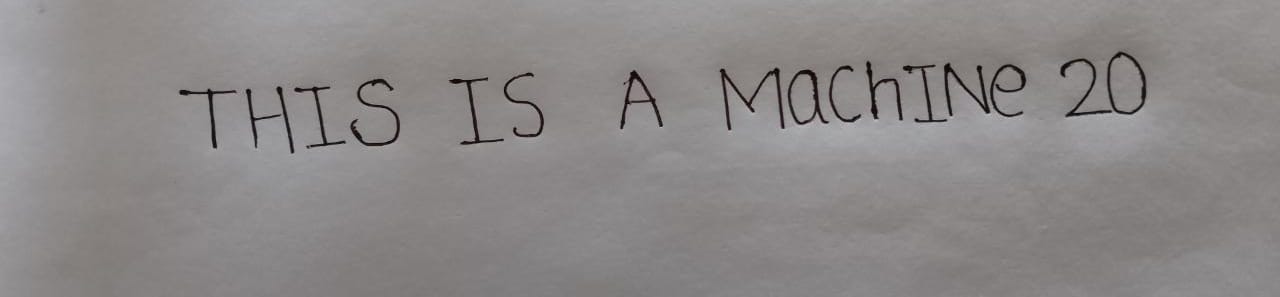 THIS IS A MachINe 20